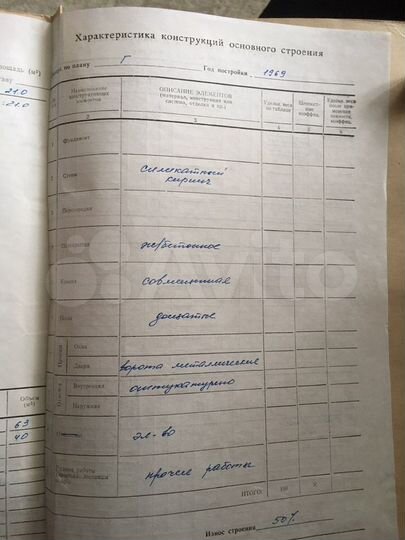 Характеристика конструкций основного строения
по плану Г Год постройки 1969
площадь (м²)
210
210
Наименование конструктивных элементов
ОПИСАНИЕ ЭЛЕМЕНТОВ (материал, конструкция или система, отделка и пр.)
Удельн. веса по таблице
Удельн. веса после
2 3 4 5 6
1 Фундамент
2 Стены силикатный
кирпич
3 Перегородки
Перекрытия ж/бетонное
Крыша совмещенная
Полы дощатые
Проемы Окна
Двери ворота металлические
Внутренняя оштукатурено
Наружная
эл-во
прочие работы
ИТОГО: 100 X
Износ строения 50%
Объем (м³)
63
40